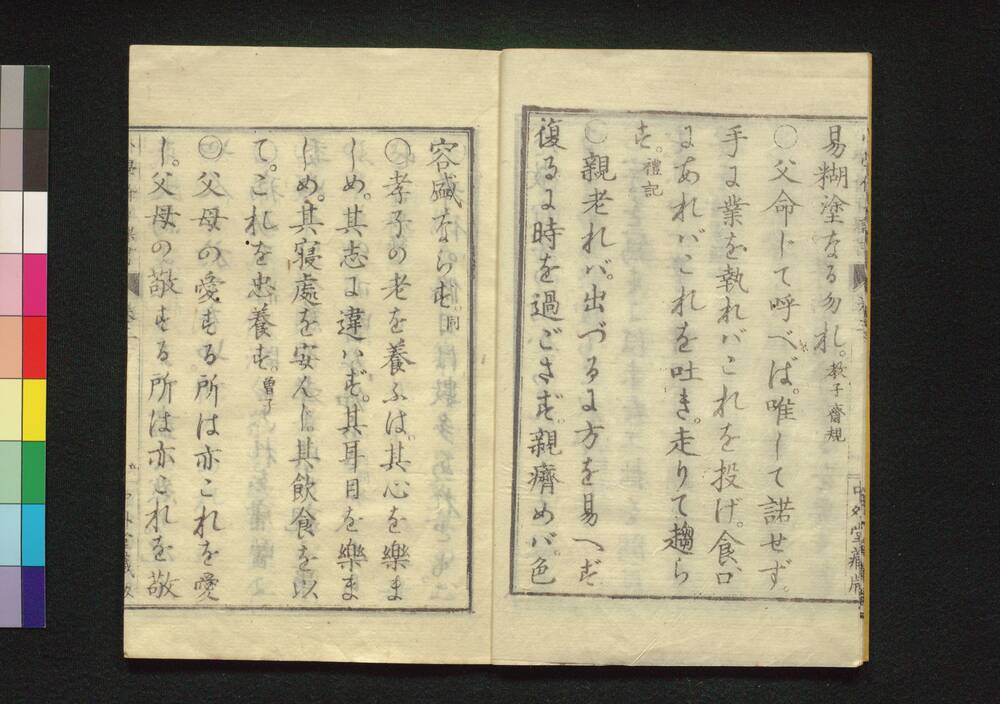 易糊塗なる勿れ。教子齋規
〇父命じて呼べば。唯して諾せず。
手に業を執れバこれを投げ。食口
にあれバこれを吐き。走りて趨ら
ず。禮記
〇親老れバ。出づるに方を易へず
復るに時を過ごさず。親癠めバ。色
容盛ならず。同
〇孝子の老を養ふは。其心を樂ま
しめ。其志に違ハず。其耳目を樂ま
しめ。其寢處を安んじ。其飲食を以
て。これを忠養す。曽子
〇父母の愛する所は亦これを愛
し。父母の敬する所は亦これを敬